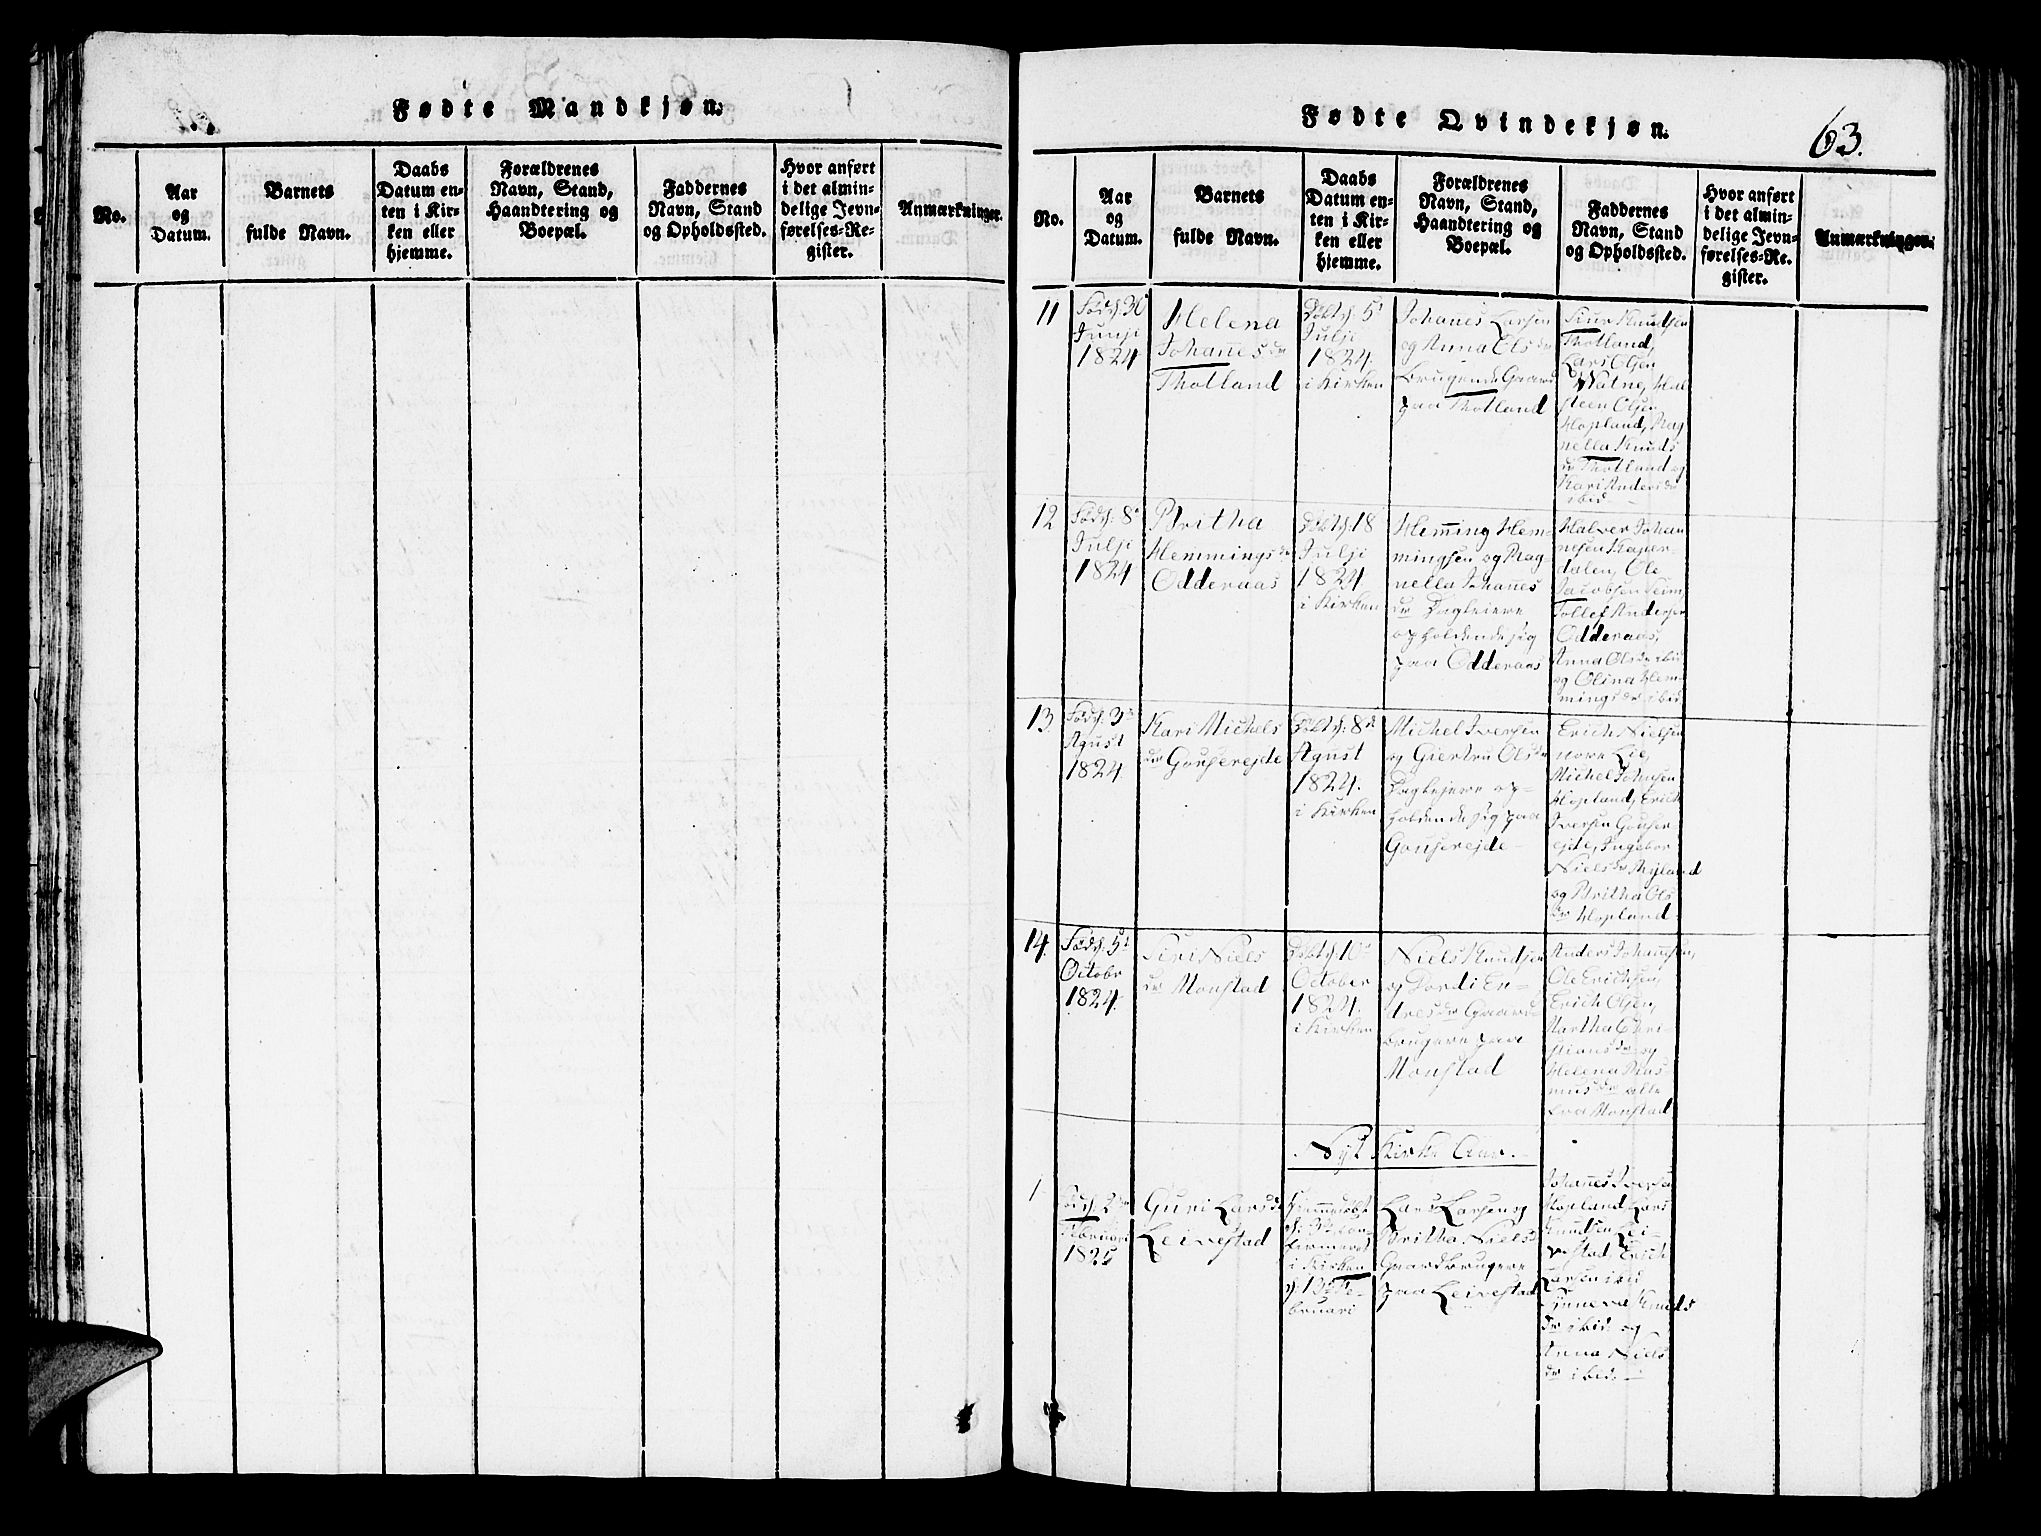 Fødte Mandkjøn.
No.
Aar
og
Datum.
Barnets
fulde Navn.
Daabs
Datum en-
ten i Kir-
ken eller
hjemme.
Forældrenes
Navn, Stand,
Haandtering og
Boepæl.
Faddernes
Navn, Stand
og Opholdssted.
Hvor anført
i det almin-
delige Jevn-
førelses-Re-
gister.
Anmærkninger.
Fødte Qvindekjøn.
63.
No.
Aar
og
Datum.
Barnets
fulde Navn.
Daabs
Datum en-
ten i Kir-
ken eller
hjemme.
Forældrenes
Navn, Stand,
Haandtering og
Boepæl.
Faddernes
Navn, Stand
og Opholdssted.
Hvor anført
i det almin-
delige Jevn-
førelses-Re-
gister.
Anmærkninger.
11
30
Junji
1824
Helena
Johannes dr
Thotland
5t
Julji
1824.
i Kirken
Johanes Larsen
og Anna Ols dr
brugende Gaard
paa Thotland
Knudsen
Thotland,
Lars Olsen
Watne, Hal
steen Olsen
Hopland, Rag
nella Knuds
dr Thotland og
Kari Anders dr
ibid
12
8d
Julji
1824
Britha
Hemmings dr
Odderaas
18
Julji
1824
i Kirken
Hemming Hem-
mingsen og Rag
nella Johanes
dr Dagleiere
opholdende sig
paa Odderaas
Halver Johan
nesen
dalen, Ole
Jacobsen Seim,
Tollef Andersen
Odderaas,
Anna Ols dr ibid
og Olina Hem-
mings dr ibid
13.
3d
Agust
1824.
Kari Michels
dr Gouserejde
8d
Agust
1824.
i Kirken
Michel Iversen
og Giertru Ols dr
Daglejere op-
holdende sig paa
Gouserejde
Erich Nielsen
nore Lie,
Michel Johnsen
Hopland, Erich
Iversen Gouser
ejde, Ingebor
Niels dr Myland
og Britha Ols
dr Hopland
14.
5t
Octobr
1824.
Siri Niels
dr Monstad
10d
October
1824.
i Kirken
Niels Knudsen
og Dordi En-
dres dr Gaard-
brugere paa
Monstad
Anders Johannsen,
Ole Erichsen,
Erich Olsen,
Martha Chri-
stians dr og
Helena Ras
mus dr alle
fra Monstad
Nyt Kirke Aar.
1
2den
Februari
1825
Guri Lars dr
Leivestad
i Kirken
d. 13de Fe-
bruari
Lars Larsen og
Britha Niels dr
Gaardbrugere
paa Leivestad
Johanes Iversen
Hopland, Lars
Knudsen Lei-
vestad, Erich
Larsen ibid
Synneva Knuds
dr ibid og
Anna Niels
dr ibid.